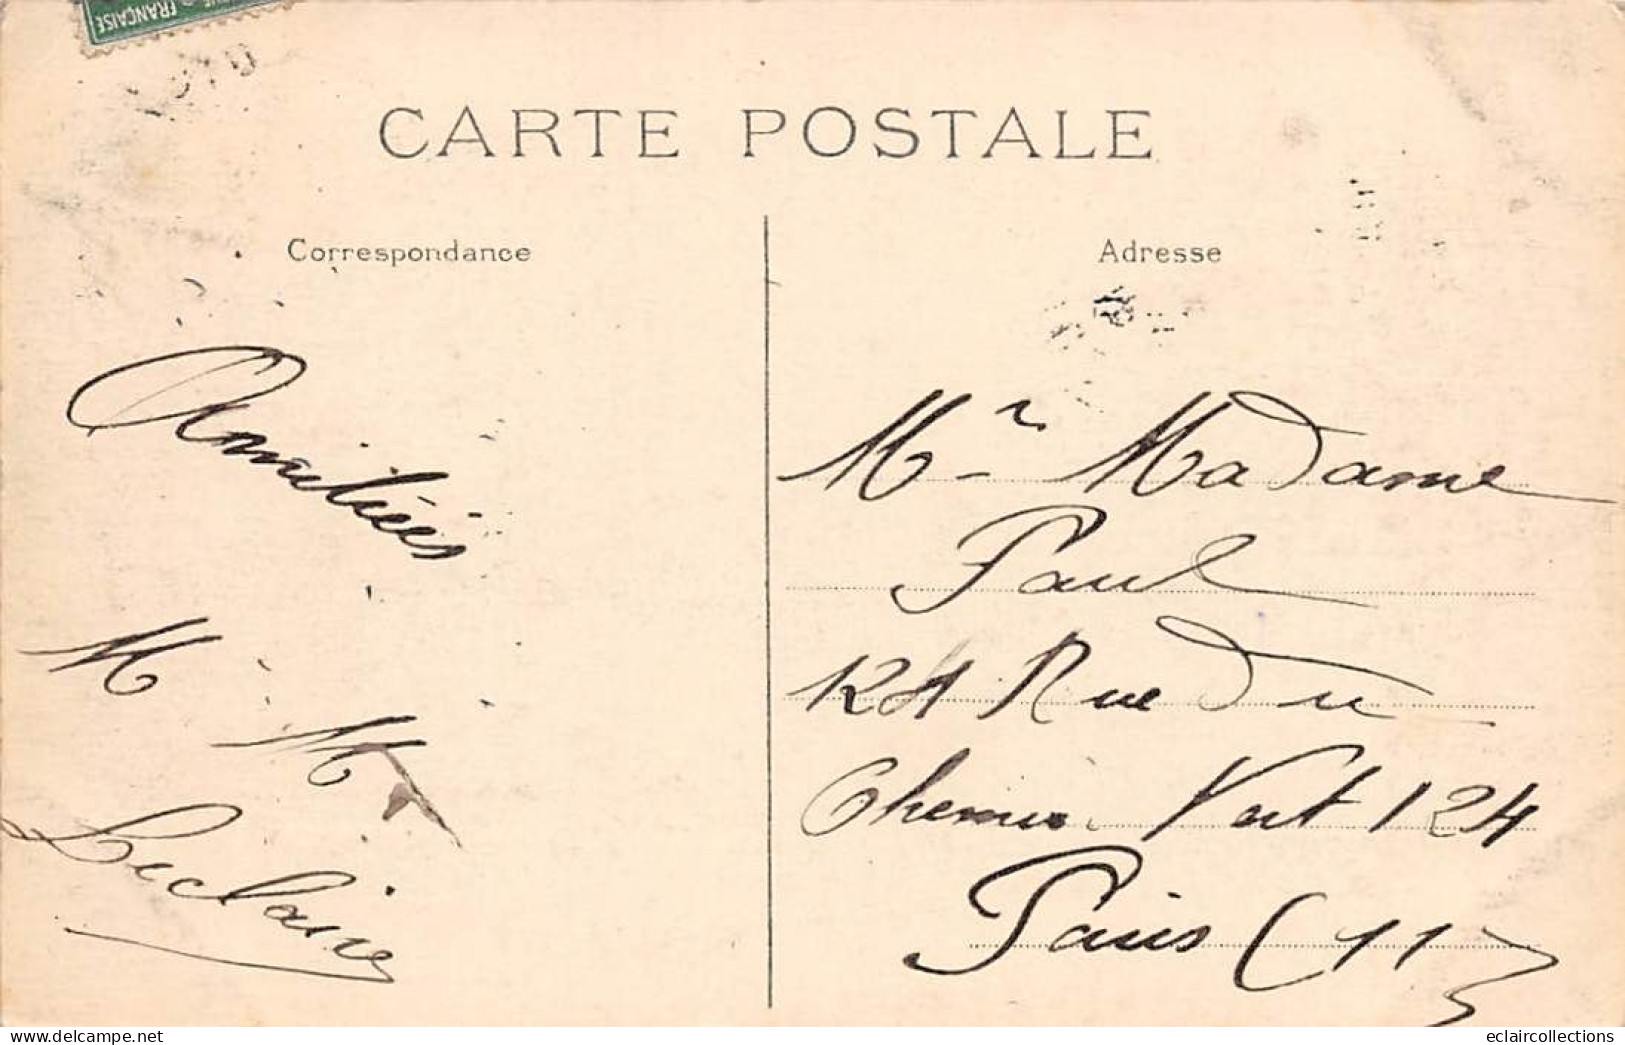 FRANÇAISE
CARTE POSTALE
Correspondance
Adresse
Amitiées
M M
Leclaire
Mr Madame
Paul
124 Rue Du
Chemin Vert 124
Paris (11)
delcampe.net
eclaircollections